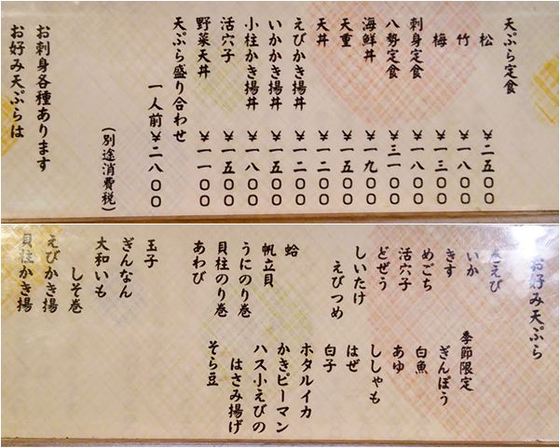 天ぷら定食
松 ¥二五〇〇
竹 ¥一八〇〇
梅 ¥一三〇〇
刺身定食 ¥一八〇〇
八勢定食 ¥三一〇〇
海鮮丼 ¥一九〇〇
天重 ¥一五〇〇
天丼 ¥一二〇〇
えびかき揚丼 ¥一二〇〇
いかかき揚丼 ¥一五〇〇
小柱かき揚丼 ¥一八〇〇
活穴子 ¥一五〇〇
野菜天丼 ¥一一〇〇
天ぷら盛り合わせ
一人前 ¥二八〇〇
(別途消費税)
お刺身各種あります
お好み天ぷらは
お好み天ぷら
巻えび
いか
きす
めごち
活穴子
どぜう
しいたけ
えびつめ
季節限定
ぎんぽう
白魚
あゆ
ししゃも
はぜ
白子
蛤
帆立貝
うにのり巻
貝柱のり巻
あわび
ホタルイカ
かきピーマン
ハス小えびの
はさみ揚げ
そら豆
玉子
ぎんなん
大和いも
しそ巻
えびかき揚
貝柱かき揚